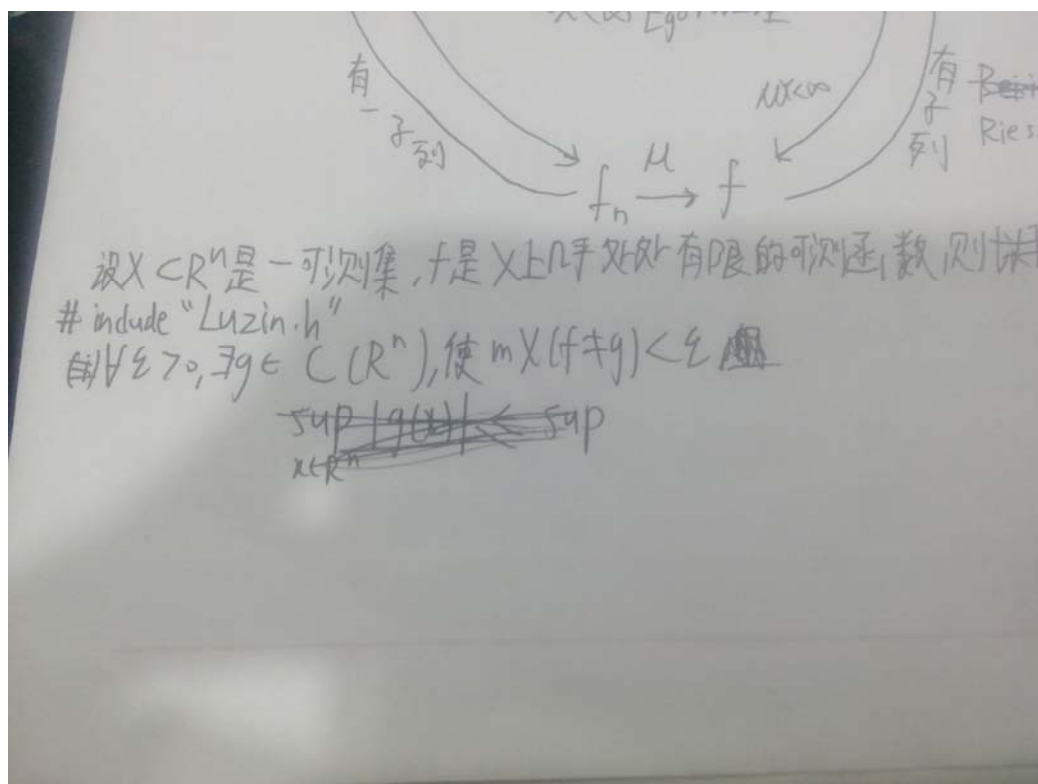 有一子列
μX<∞
有子列
Ries
fₙ →μ f
设X⊂Rⁿ是一可测集,f是X上几乎处处有限的可测函数,则
#include "Luzin.h"
∀ε>0,∃g∈C(Rⁿ),使mX(f≠g)<ε
sup |g(x)| ≤ sup
x∈Rⁿ